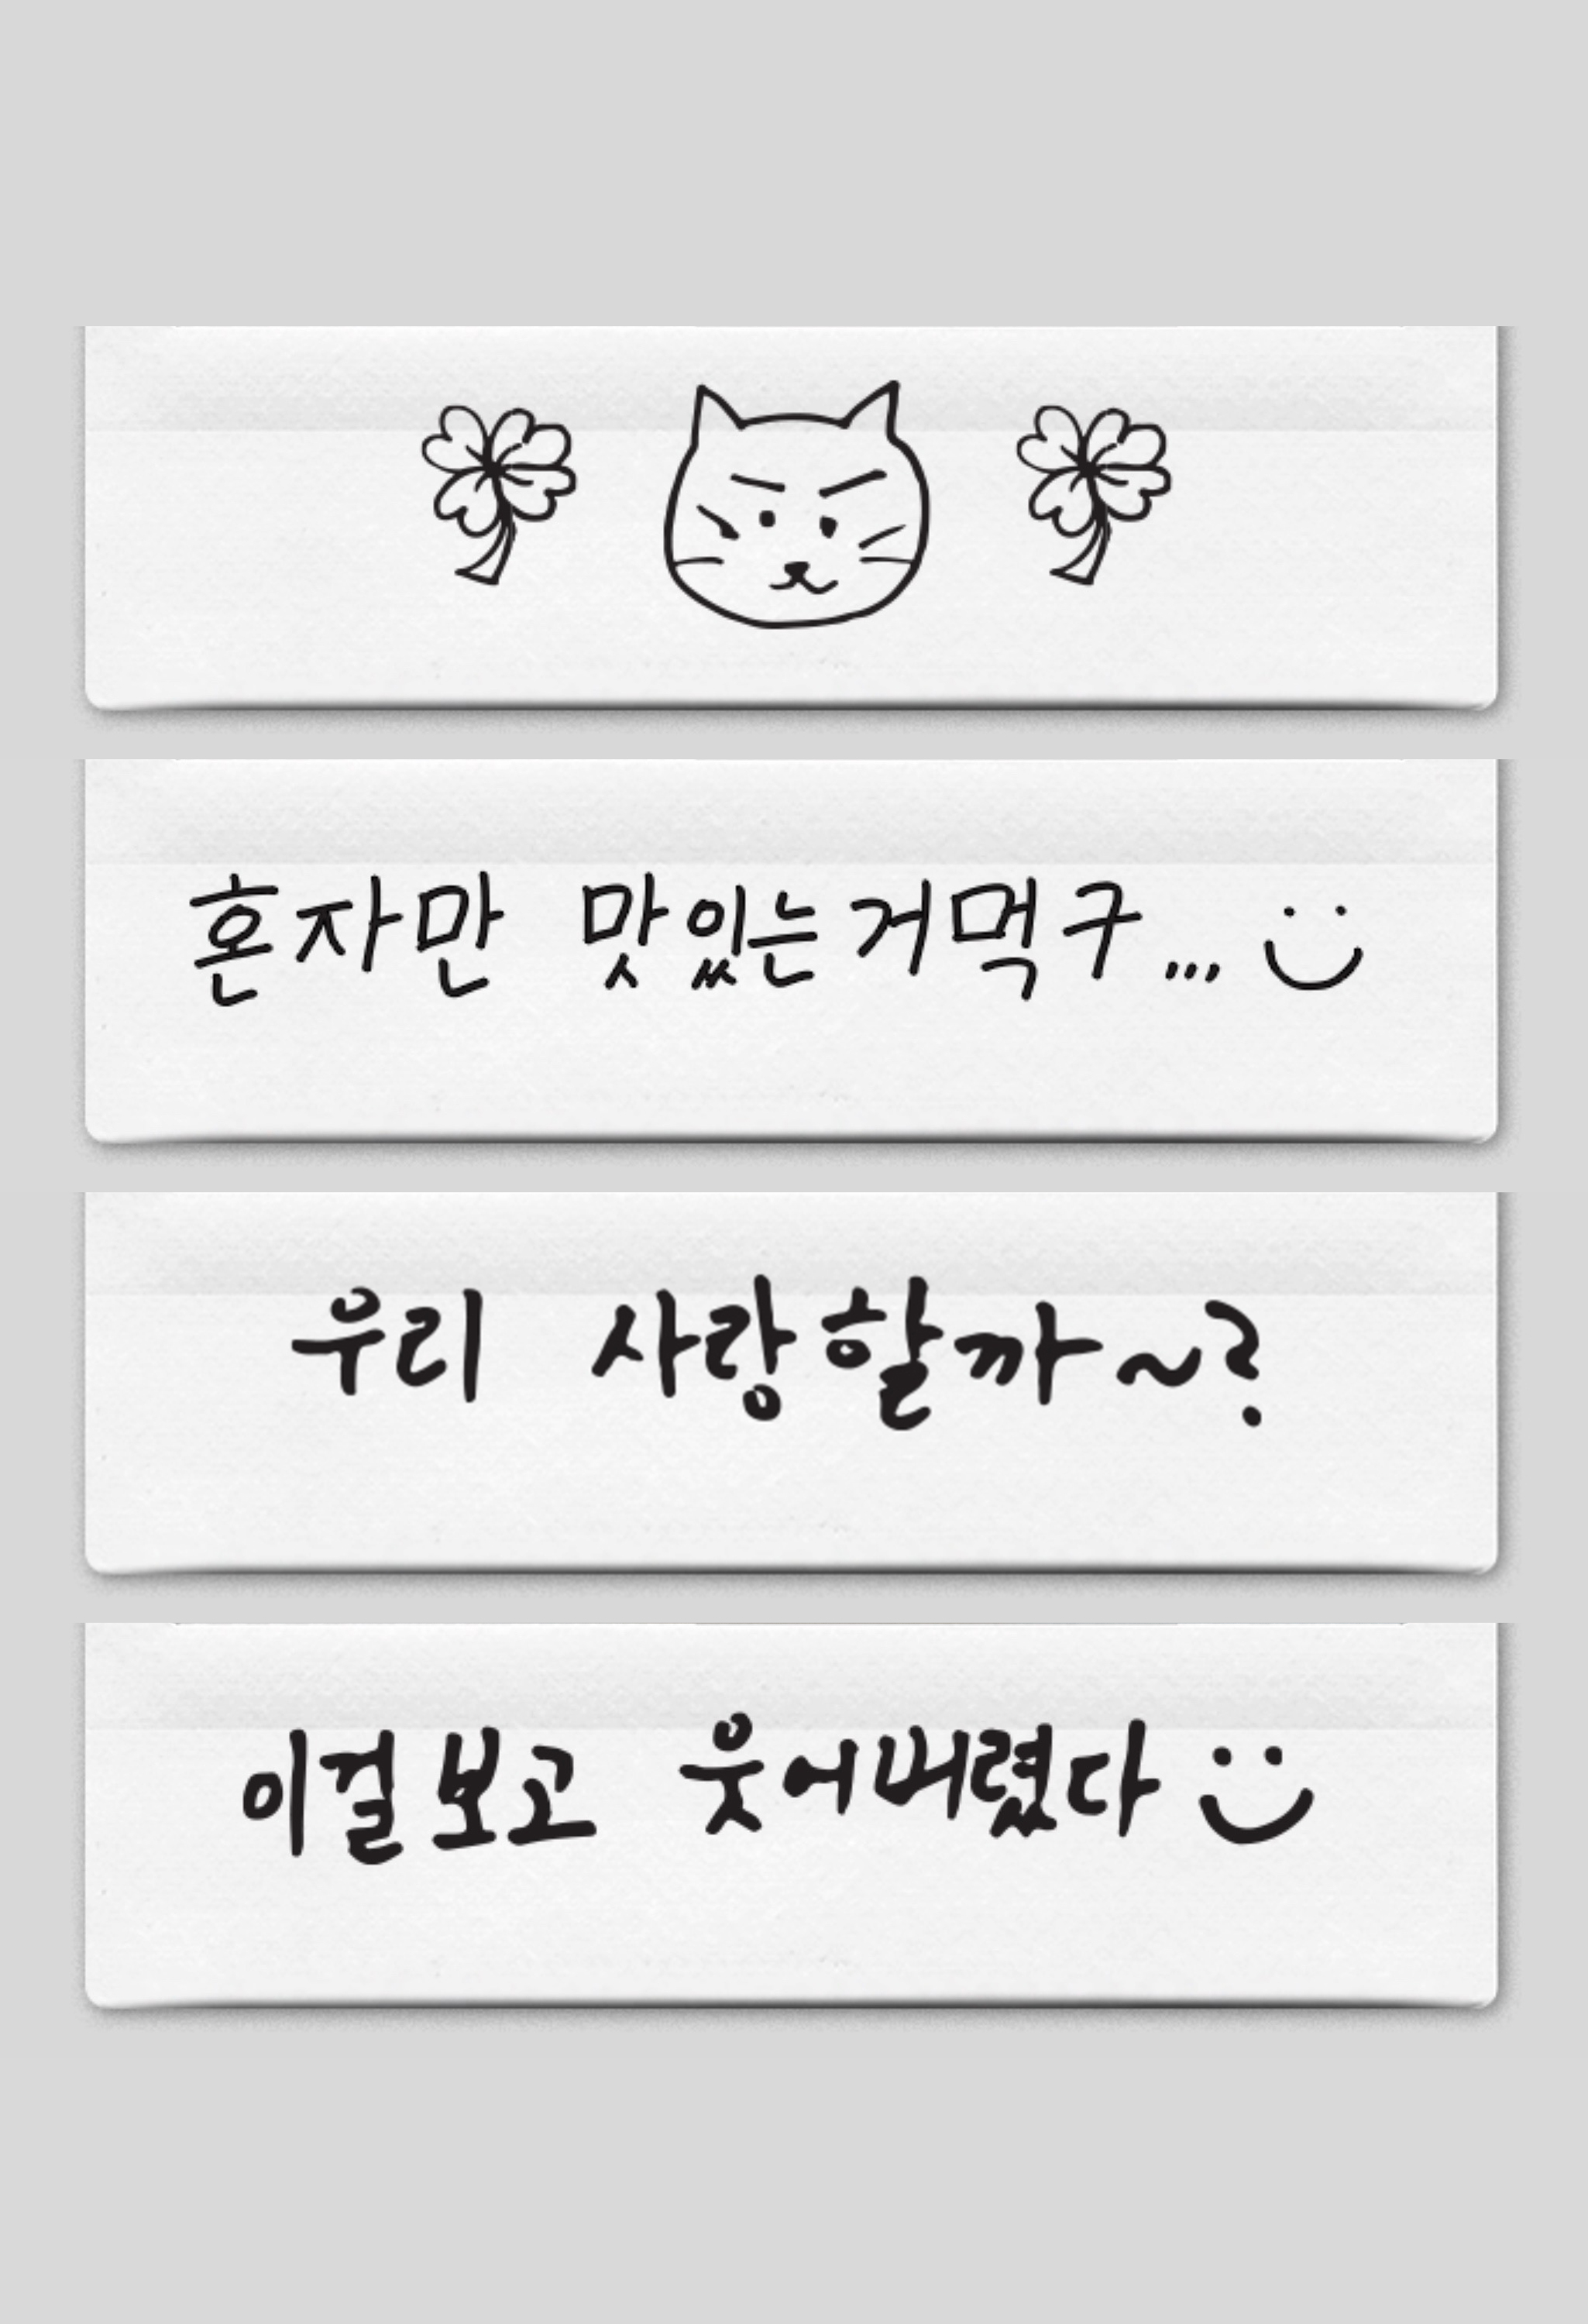 혼자만 맛있는거먹구... :)
우리 사랑할까~?
이걸보고 웃어버렸다 :)